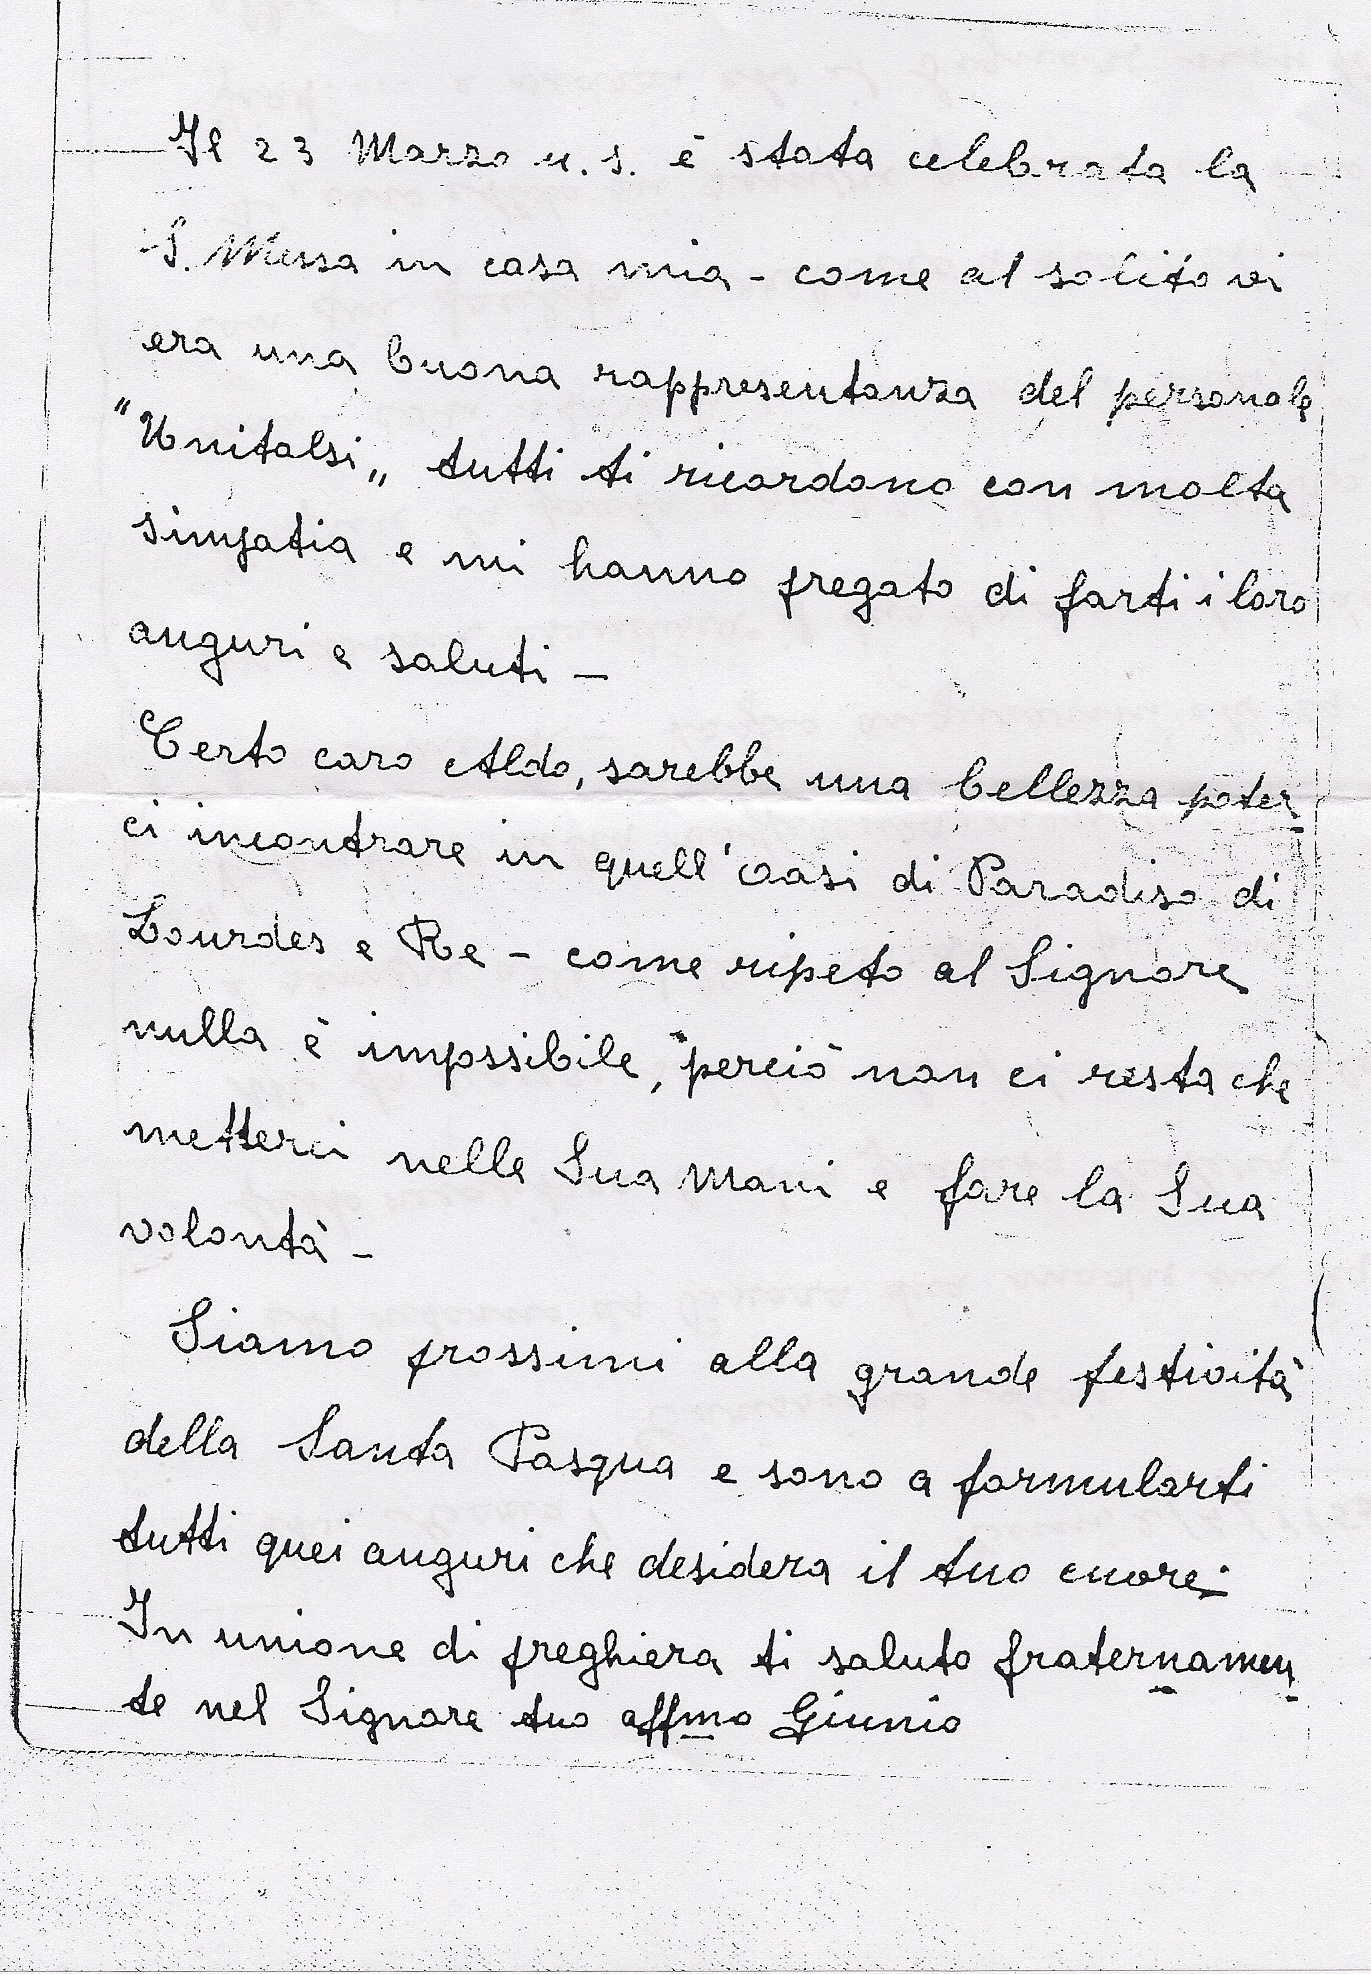 Il 23 Marzo u.s. è stata celebrata la
S. Messa in casa mia - come al solito vi
era una buona rappresentanza del personale
"Unitalsi„ tutti ti ricordano con molta
simpatia e mi hanno pregato di farti i loro
auguri e saluti -
Certo caro Aldo, sarebbe una bellezza poter
ci incontrare in quell'oasi di Paradiso di
Lourdes e Re - come ripeto al Signore
nulla è impssibile, perciò non ci resta che
metterci nelle Sua Mani e fare la Sua
volontà -
Siamo prossimi alla grande festività
della Santa Pasqua e sono a formularti
tutti quei auguri che desidera il tuo cuore -
In unione di preghiera ti saluto fraternamen
te nel Signore tuo affmo Giunio